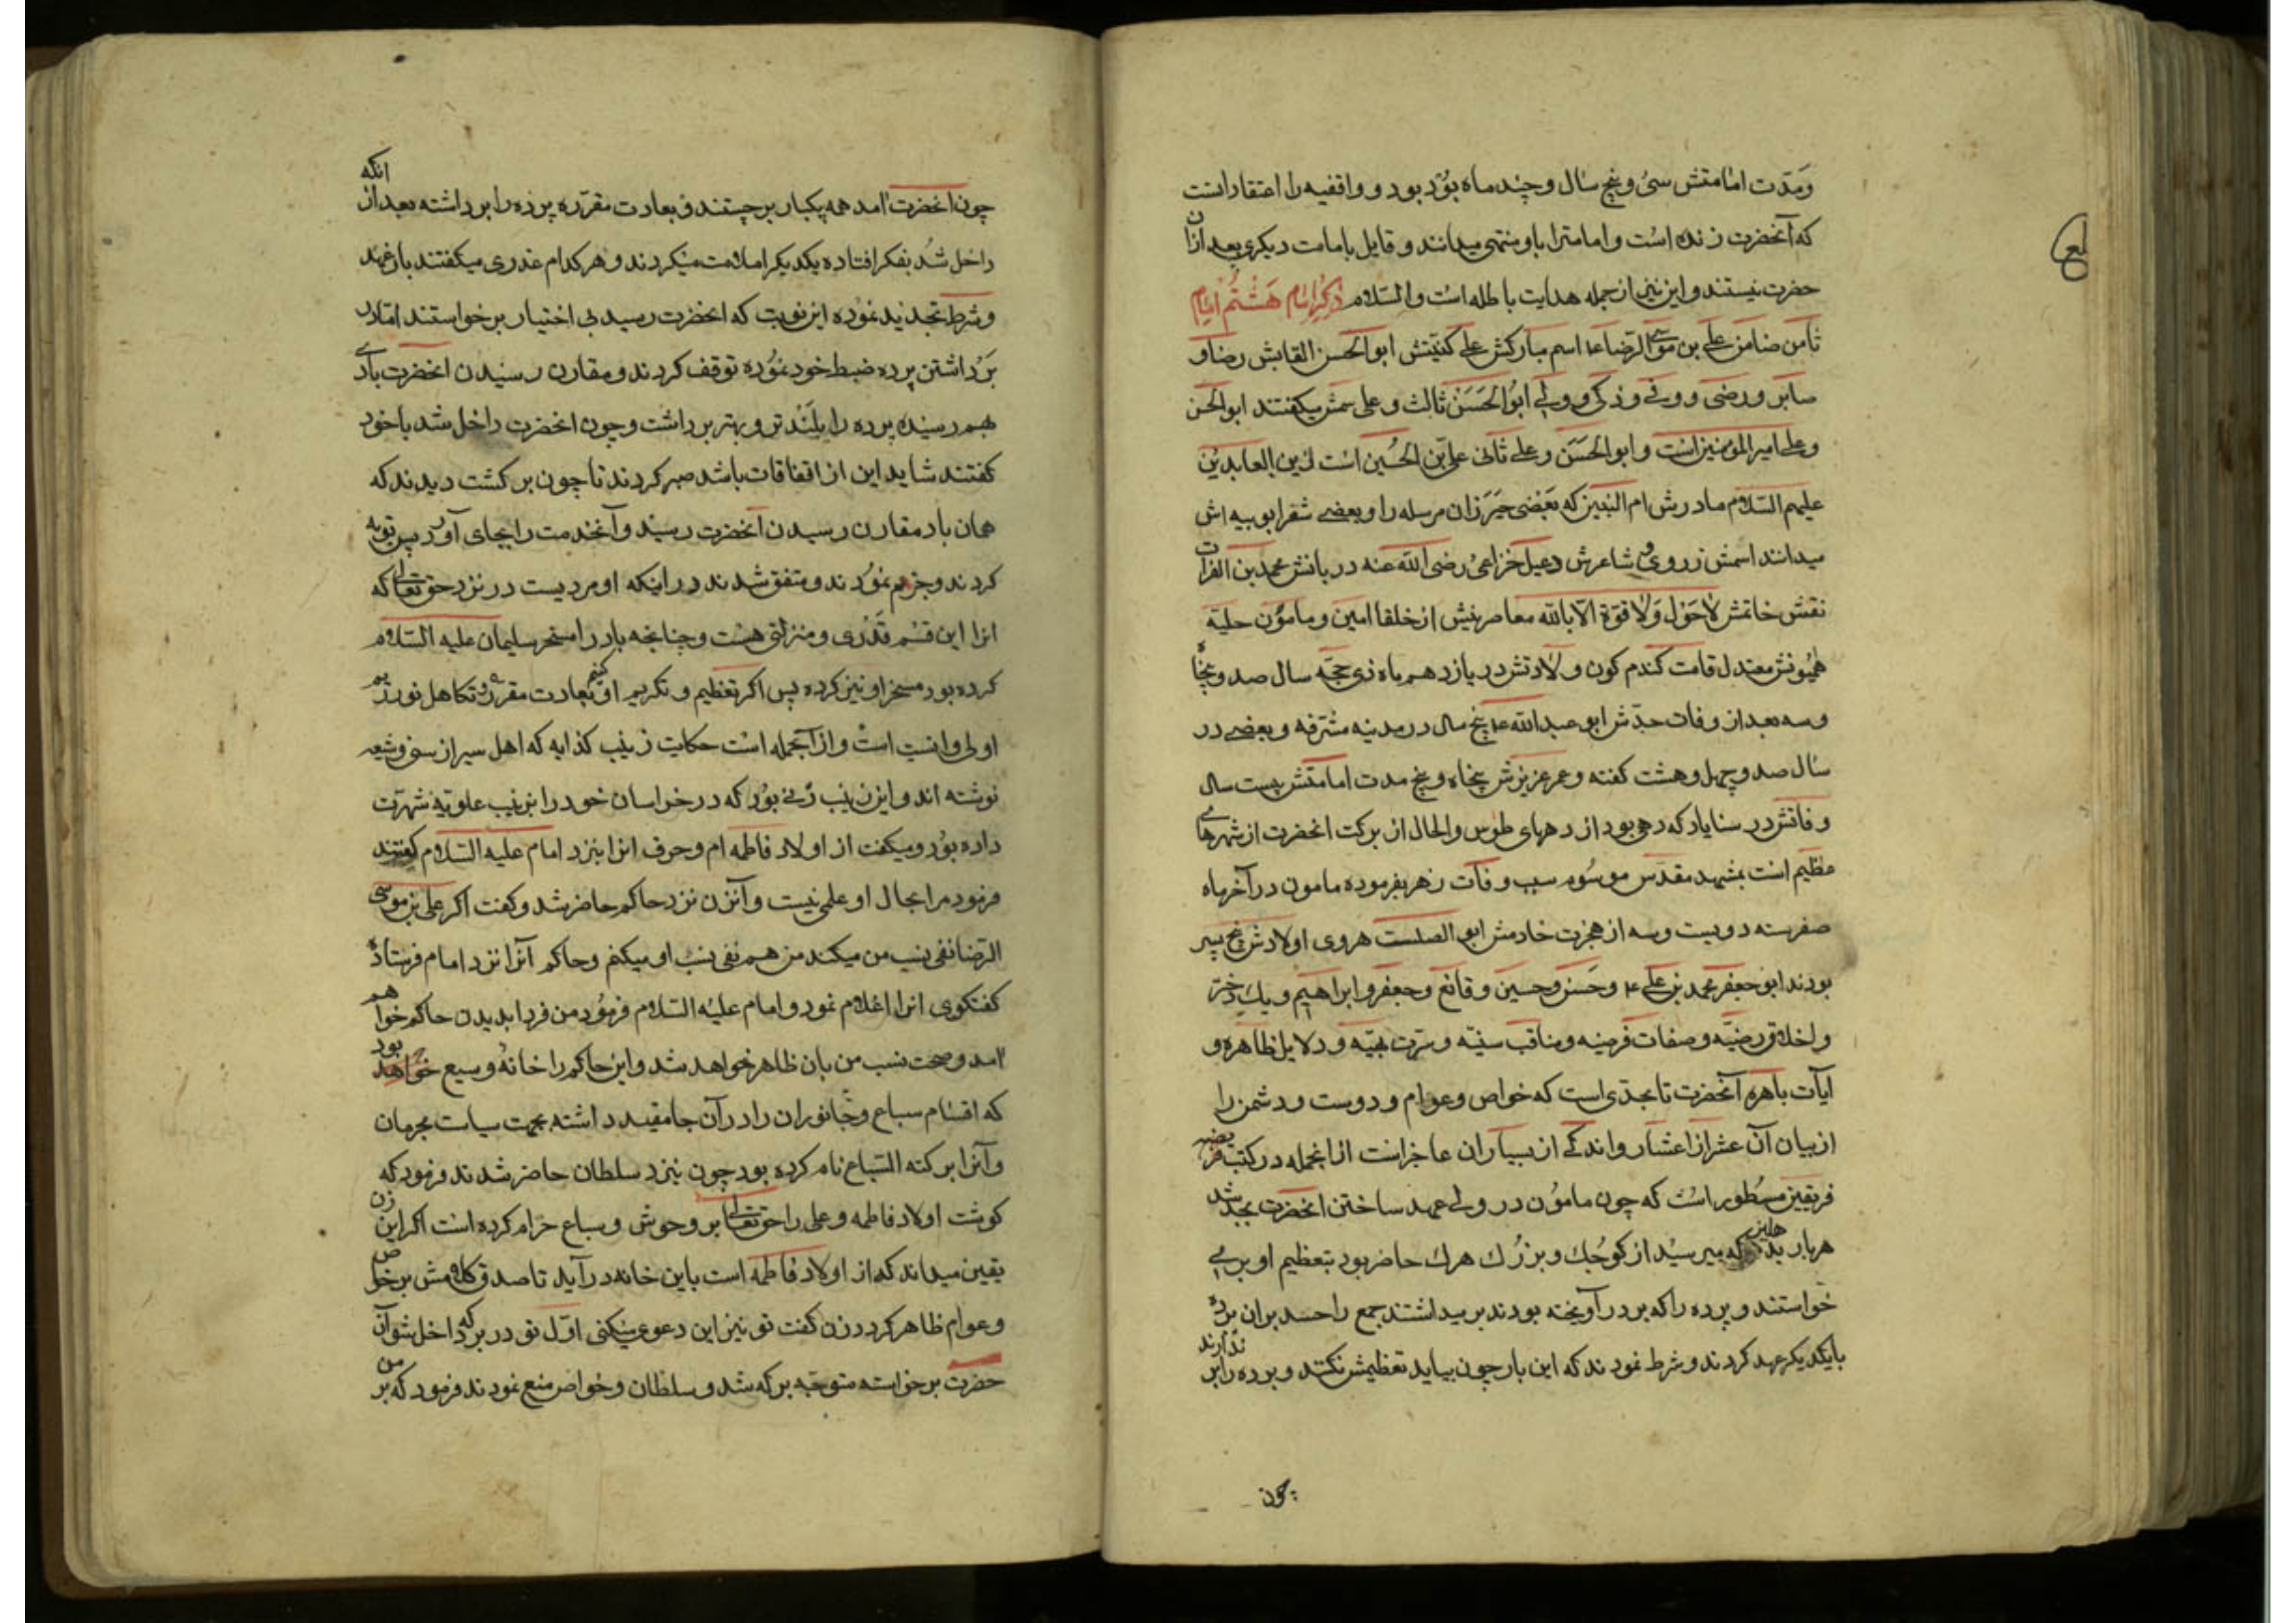 ومدت امامتش سی و پنج سال و چند ماه بود و واقفیه را اعتقاد اینست
که آنحضرت زنده است و امامترا باو منتهی میدانند و قایل بامامت دیکری بعد ازان
حضرت نیستند و این نیز از جمله هدایت باطله است والسلام ذکر امام هشتم امام
ثامن ضامن علی بن موسی الرضا ع اسم مبارکش علی کنیتش ابو الحسن القابش رضا و
صابر و رضی و وفی و زکی و ولی ابو الحسن ثالث و علی میکفتند ابو الحسن
و علی امیر المومنین است و ابو الحسن و علی ثانی علی بن الحسین است زین العابدین
علیهم السلام مادرش ام البنین که بعضی خیزران مرسله را و بعضی شقرا نوبیه اش
میدانند اسمش و شاعرش دعبل خزاعی رضی الله عنه دربانش محمد بن الفرات
نقش خاتمش لا حول ولا قوة الا بالله معاصرینش از خلفا امین و مامون حلیه
همیونش معتدل قامت کندم کون ولادتش در یازدهم ماه ذی حجه سال صد و پنجاه
و سه بعد از وفات جدش ابو عبد الله ع پنج سال در مدینه مشرفه و بعضی در
سال صد و چهل و هشت کفته و عمر عزیزش پنجاه و پنج مدت امامتش بیست سال
وفاتش در سناباد که دهی بود از دههای طوس والحال از برکت انحضرت از شهرهای
عظیم است بمشهد مقدس موسوم سبب وفات زهر بفرموده مامون در آخر ماه
صفر سنه دویست و سه از هجرت خادمش ابو الصلت هروی اولادش پنج پسر
بودند ابو جعفر محمد بن علی ع و حسن و حسین و قانع و جعفر و ابراهیم و یک دختر
و اخلاق رضیه و صفات مرضیه و مناقب سنیه و سیرت بهیه و دلایل ظاهره و
آیات باهره آنحضرت تا بحدی است که خواص و عوام و دوست و دشمن را
از بیان آن عشر از اعشار و اندکی از بسیاران عاجز است از انجمله در کتب
فریقین مسطور است که چون مامون در ولی عهد ساختن انحضرت بجد شد
هر بار که بدهلیز میرسید از کوچک و بزرک هرک حاضر بود بتعظیم او بر می
خواستند و پرده را که بر در آویخته بودند بر میداشتند جمع را حسد بران برده
بایکدیکر عهد کردند و شرط نمودند که این بار چون بیاید تعظیمش نکنند و پرده را بر ندارند
چون
چون انحضرت آمد همه یکبار برجستند و بعادت مقرره پرده را برداشته بعد از انکه
داخل شد بفکر افتاده یکدیکر را ملامت میکردند و هر کدام عذری میکفتند باز عهد
و شرط تجدید نموده این نوبت که انحضرت رسید بی اختیار برخواستند اما در
برداشتن پرده ضبط خود نموده توقف کردند و مقارن رسیدن انحضرت بادی
بهم رسیده پرده را بلندتر و بهتر برداشت و چون انحضرت داخل شد با خود
کفتند شاید این از اتفاقات باشد صبر کردند تا چون برکشت دیدند که
همان باد مقارن رسیدن آنحضرت رسید و آنخدمت را بجای آورد پس توبه
کردند و جزم نمودند و متفق شدند در اینکه او مردیست در نزد حق تعالی که
انرا این قسم قدری و منزلتی هست و چنانچه باد را مسخر سلیمان علیه السلام
کرده بود مسخر او نیز کرده پس اکر تعظیم و تکریم او کنیم بعادت مقرره و تکاهل نورزیم
اولی و انسب است و از آنجمله است حکایت زینب کذابه که اهل سیر از سنی و شیعه
نوشته اند و این زینب زنی بود که در خراسان خود را بزینب علویه شهرت
داده بود و میکفت از اولاد فاطمه ام و حرف انرا بنزد امام علیه السلام کفتند
فرمود مرا بحال او علمی نیست و آنزن نزد حاکم حاضر شد و کفت اکر علی بن موسی
الرضا نفی نسب من میکند من هم نفی نسب او میکنم و حاکم آنرا نزد امام فرستاده
کفتکوی انرا اعلام نمود و امام علیه السلام فرمود من فردا بدیدن حاکم خواهم
آمد و صحت نسب من بان ظاهر خواهد شد و این حاکم را خانهٔ وسیع بود
که اقسام سباع و جانوران را در آن جا مقید داشته بجهت سیاست مجرمان
و آنرا برکه السباع نام کرده بود چون بنزد سلطان حاضر شدند فرمود که
کوشت اولاد فاطمه و علی را حق تعالی بر وحوش و سباع حرام کرده است اکر این زن
یقین میداند که از اولاد فاطمه است باین خانه در آید تا صدق کلامش بر خواص
و عوام ظاهر کردد زن کفت تو نیز این دعوی میکنی اول تو در برکه داخل شو آن
حضرت برخواسته متوجه برکه شد و سلطان و خواص منع نمودند فرمود که بر من